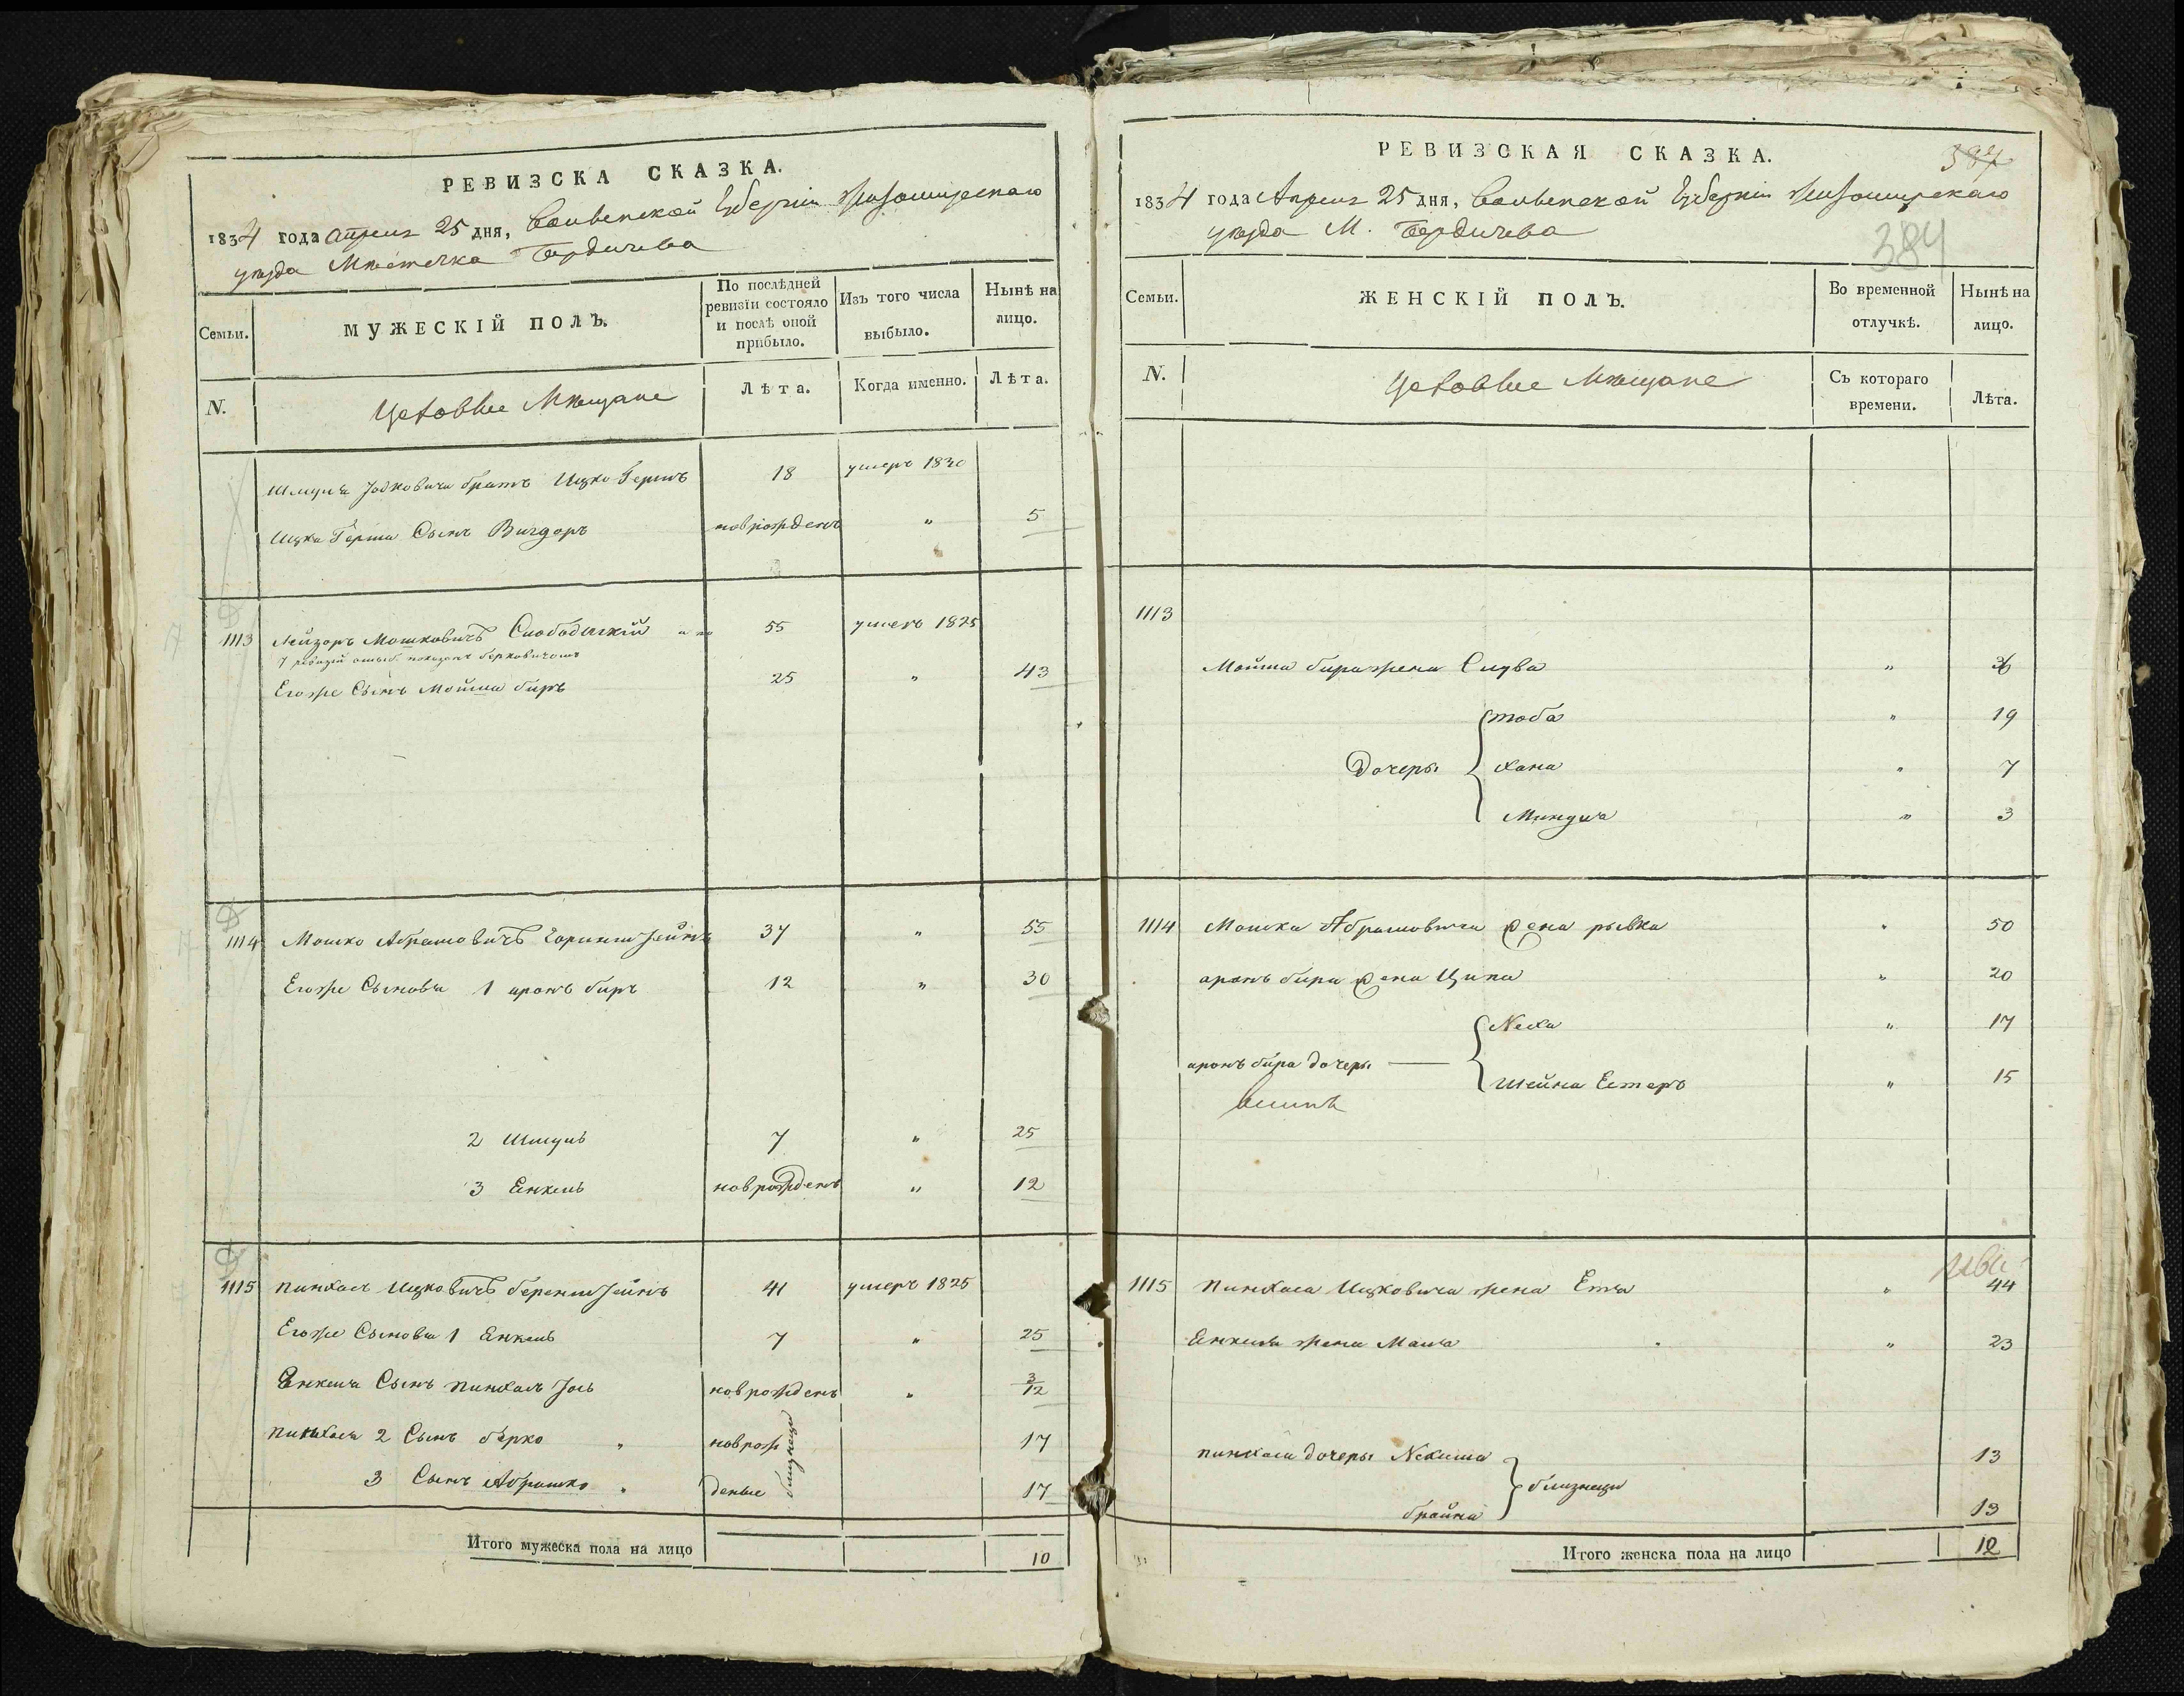 РЕВИЗСКА СКАЗКА.
1834 года Апреля 25 дня, Волынской Губерніи Житомирскаго
уезда Местечка Бердичева
Семьи.
МУЖЕСКІЙ ПОЛЪ.
По послѣдней ревизіи состояло и послѣ оной прибыло.
Изъ того числа выбыло.
Нынѣ на лицо.
N.
Цеховые Мещане
Лѣта.
Когда именно.
Лѣта.
Шмуля братъ Ицко Гершъ 18 умеръ 1830
Ицка Герша Сынъ Вигдоръ новрожденъ " 5
1113 Лейзоръ Мошковичъ 55 умеръ 1825
Егоже Сынъ Мойша биръ 25 " 43
1114 Мошко Абрамовичъ 37 " 55
Егоже Сыновья 1 аронъ биръ 12 " 30
2 Шмуль 7 " 25
3 Енкель новрожденъ " 12
1115 пинхасъ Ицковичъ беренштейнъ 41 умеръ 1825
Егоже Сыновья 1 Енкель 7 " 25
Енкеля Сынъ пинхасъ новрожденъ " 3/12
пинхаса 2 Сынъ берко " новрож 17
3 Сынъ Абрамко " деные близнецы 17
Итого мужеска пола на лицо 10
РЕВИЗСКАЯ СКАЗКА.
384
1834 года Апреля 25 дня, Волынской Губерніи Житомирскаго
уезда М. Бердичева
384
Семьи.
ЖЕНСКІЙ ПОЛЪ.
Во временной отлучкѣ.
Нынѣ на лицо.
N.
Цеховые Мещане
Съ котораго времени.
Лѣта.
1113
Мойша бира жена " 36
Дочеры
тоба " 19
хана " 7
Миндля " 3
1114 Мошка Абрамовича жена рывка " 50
аронъ бира жена Ципа " 20
аронъ бира дочеры
Неха " 17
Шейна Естеръ " 15
1115 Пинхаса Ицковича жена " 44
Енкеля жена " 23
пинхаса дочеры 13
брайна близнецы 13
Итого женска пола на лицо 12